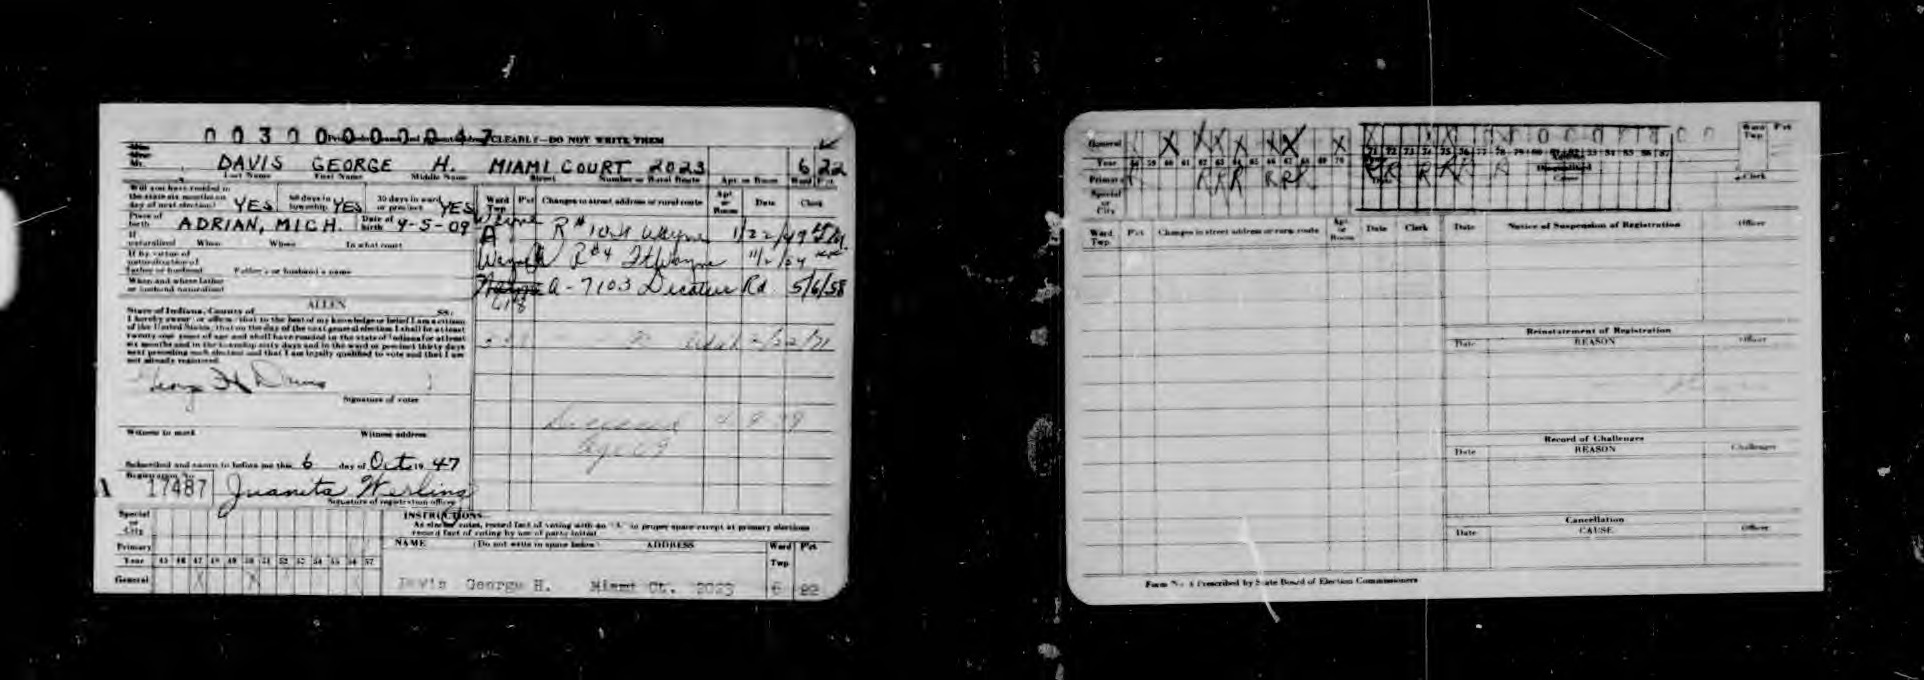 00300000047 CLEARLY—DO NOT WRITE THEM
Mr. DAVIS GEORGE H. MIAMI COURT 2023 6 22
Last Name First Name Middle Name Street Number or Rural Route Apt. or Room Ward Pct.
Will you have resided in
the state six months on
day of next election? YES 60 days in township YES 30 days in ward or precinct YES
Ward Twp Pct Changes in street address or rural route Apt. or Room Date Clerk
Place of birth ADRIAN, MICH. Date of birth 9-5-09
Wayne A R#10 Ft Wayne 1/22/49
If naturalized When Where In what court
If by virtue of
naturalization of
father or husband Father's or husband's name
Wayne A R#4 Ft Wayne 11/2/54
When and where father
or husband naturalized
A-7103 Decatur Rd. 5/6/58
ALLEN
State of Indiana, County of SS:
I hereby swear or affirm that to the best of my knowledge or belief I am a citizen
of the United States; that on the day of the next general election I shall be at least
twenty-one years of age and shall have resided in the state of Indiana for at least
six months and in the township sixty days and in the ward or precinct thirty days
next preceding such election and that I am legally qualified to vote and that I am
not already registered.
2/22/71
George H Davis
Signature of voter
Deceased
Age 69
Witness to mark Witness address
Subscribed and sworn to before me this 6 day of Oct 19 47
Registration No.
A 17487 Juanita Werling
Signature of registration officer
INSTRUCTIONS
As elector votes, record fact of voting with an "X" in proper space except at primary elections
record fact of voting by use of party initial
Special or City
Primary
Year 45 46 47 48 49 50 51 52 53 54 55 56 57
General X X
NAME (Do not write in space below) ADDRESS Ward Twp Pct
Davis George H. Miami Ct. 2023 6 22
General X X X X X X X
Year 58 59 60 61 62 63 64 65 66 67 68 69 70 71 72 73 74 75 76 77 78 79 80 81 82 83 84 85 86 87
Primary R R R R R R R R R R R
Special or City
Ward Twp. Pct
Clerk
Ward Twp. Pct Changes in street address or rural route Apt. or Room Date Clerk
Date Notice of Suspension of Registration Officer
Reinstatement of Registration
Date REASON Officer
Record of Challenges
Date REASON Challenger
Cancellation
Date CAUSE Officer
Form No. 4 Prescribed by State Board of Election Commissioners